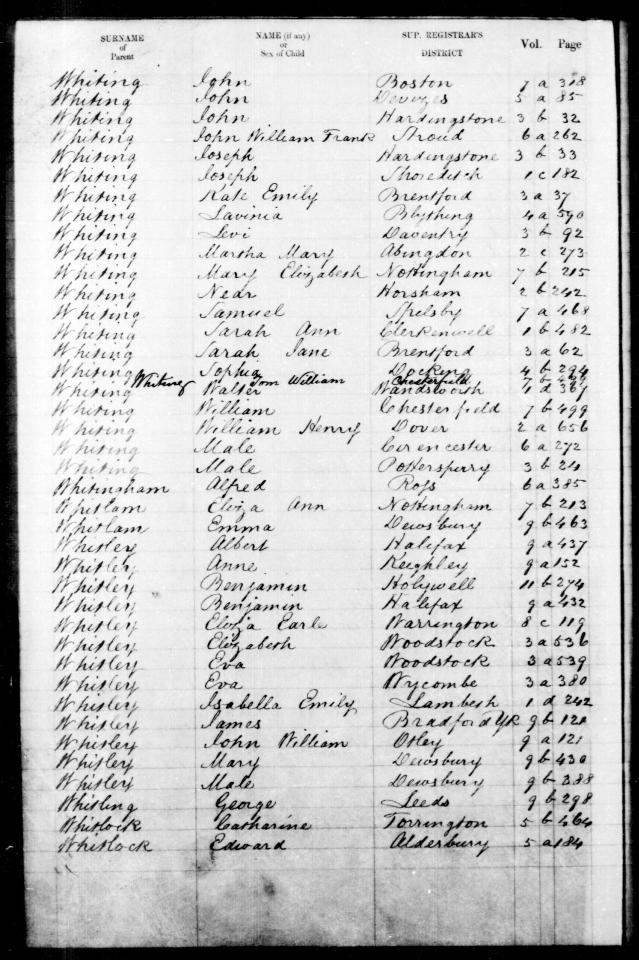 SURNAME of Parent NAME (if any) or Sex of Child SUP. REGISTRAR'S DISTRICT Vol. Page
Whiting John Boston 7 a 318
Whiting John Devizes 5 a 85
Whiting John Hardingstone 3 b 32
Whiting John William Frank Stroud 6 a 262
Whiting Joseph Hardingstone 3 b 33
Whiting Joseph Shoreditch 1 c 182
Whiting Kate Emily Brentford 3 a 37
Whiting Lavinia Blything 4 a 590
Whiting Levi Daventry 3 b 92
Whiting Martha Mary Abingdon 2 c 273
Whiting Mary Elizabeth Nottingham 7 b 215
Whiting Near Horsham 2 b 242
Whiting Samuel Spilsby 7 a 468
Whiting Sarah Ann Clerkenwell 1 b 482
Whiting Sarah Jane Brentford 3 a 62
Whiting Sophia Docking 4 b 294
Whiting Tom William Chesterfield 7 b
Whiting Walter Wandsworth 1 d 367
Whiting William Chesterfield 7 b 499
Whiting William Henry Dover 2 a 656
Whiting Male Cirencester 6 a 272
Whiting Male Potterspury 3 b 24
Whitingham Alfred Ross 6 a 385
Whitlam Eliza Ann Nottingham 7 b 213
Whitlam Emma Dewsbury 9 b 463
Whitley Albert Halifax 9 a 437
Whitley Anne Keighley 9 a 152
Whitley Benjamin Holywell 11 b 274
Whitley Benjamin Halifax 9 a 432
Whitley Eliza Earle Warrington 8 c 119
Whitley Elizabeth Woodstock 3 a 536
Whitley Eva Woodstock 3 a 539
Whitley Eva Wycombe 3 a 380
Whitley Isabella Emily Lambeth 1 d 242
Whitley James Bradford Yk 9 b 120
Whitley John William Otley 9 a 121
Whitley Mary Dewsbury 9 b 430
Whitley Male Dewsbury 9 b 388
Whitling George Leeds 9 b 298
Whitlock Catharine Torrington 5 b 464
Whitlock Edward Alderbury 5 a 184